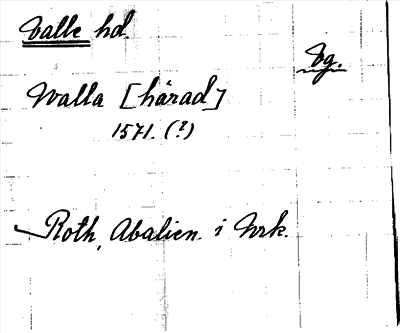 Valle hd.
Vg.
Walla [härad]
1571. (?)
Roth, Abalien. i Wrk.